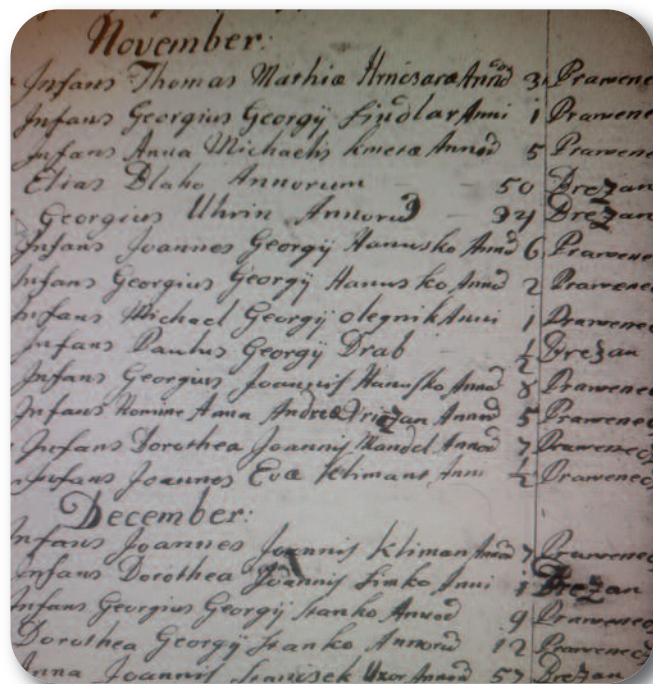 November:
Infans Thomas Mathiæ Annorū 3 Prawene
Infans Georgius Georgÿ Lindlar Anni 1 Prawene
Infans Anna Michaelis Kmeræ Annorū 5 Prawene
Elias Blaho Annorum 50 Brezan
Georgius Uhrin Annorū 34 Brezan
Infans Joannes Georgÿ Hanusko Annorū 6 Prawene
Infans Georgius Georgÿ Hanusko Annorū 2 Prawene
Infans Michael Georgÿ Olegnik Anni 1 Prawenec
Infans Paulus Georgÿ Drab ½ Brezan
Infans Georgius Joannis Hanusko Annorū 8 Prawenec
Infans Nomine Anna Andreæ Annorū 5 Prawenec
Infans Dorothea Joannis Mandel Annorū 7 Prawenec
Infans Joannes Evæ Klimant Anni ½ Prawenec
December:
Infans Joannes Joannis Kliman Annorū 7 Prawenec
Infans Dorothea Joannis Simko Anni 1 Brezan
Infans Georgius Georgÿ Stanko Annorū 9 Prawenec
Dorothea Georgÿ Stanko Annorū 12 Prawenec
Anna Joannis Uxor Annorū 57 Brezan